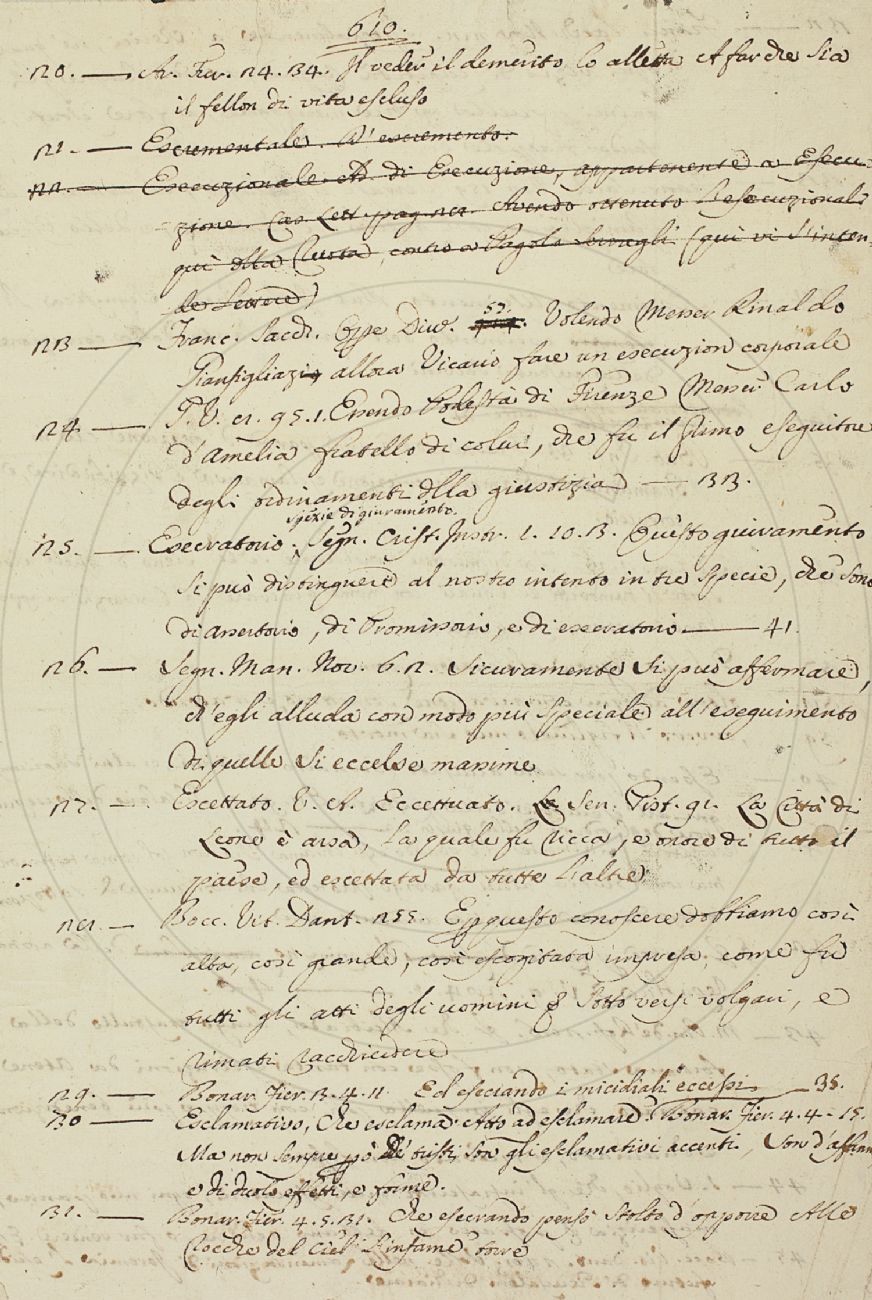 610.
120. — Ar. Fier. 24. 34. Il veder il demerito lo alletta A far che sia
il fellon di vita escluso
121. — Escrementale. D'escremento.
122. — Esecuzionale. Ad. di Esecuzione, appartenente a Esecu-
zione. Cas. Lett. pag. Avendo ottenuto l'esecuzional
qui dlla Ruota, contro a Pagolo (qui vi s'inten-
de Lettere)
123 — Franc. Sacch. Opp. Div. 57. Volendo Messer Rinaldo
Gianfigliazi allora Vicario fare un esecuzion corporale
124 — G. V. 9 5. 1. Essendo Podestà di Firenze Messer Carlo
d'Amelia fratello di colui, che fu il primo eseguitore
degli ordinamenti dlla giustizia — 33.
spezie di giuramento.
125. — Esecratorio. Segn. Crist. Instr. 1. 10. 13. Questo giuramento
si può distinguere al nostro intento in tre specie, che sono
di assertorio, di Promissorio, e di esecratorio — 41.
126. — Segn. Man. Nov. 6. 2. Sicuramente si può affermare,
ch'egli alluda con modo più speciale all'eseguimento
di quelle sì eccelse massime
127. — Escettato. V. A. Eccettuato. Sen. Pist. 91. La Città di
Leone è arsa, la quale fu ricca, e onore di tutto il
paese, ed escettata da tutte l'altre
128. — Bocc. Vit. Dant. 255. E questo conoscere dobbiamo così
alta, così grande, così escogitata impresa, come fu
tutti gli atti degli uomini sotto versi volgari, e
rimati racchiudere
129. — Bonar. Fier. 3. 4. 11. Ed esecrando i micidiali eccessi — 35.
130 — Esclamativo, Che esclama. Atto ad esclamare. Bonar. Fier. 4. 4. 15.
Ma non sempre tristi son gli esclamativi accenti, Son d'affanni,
e di duolo effetti, e forme.
131. — Bonar. Fier. 4. 5. 31. Che esecrando pensò stolto d'opporre Alle
rocche del Ciel l'infame torre